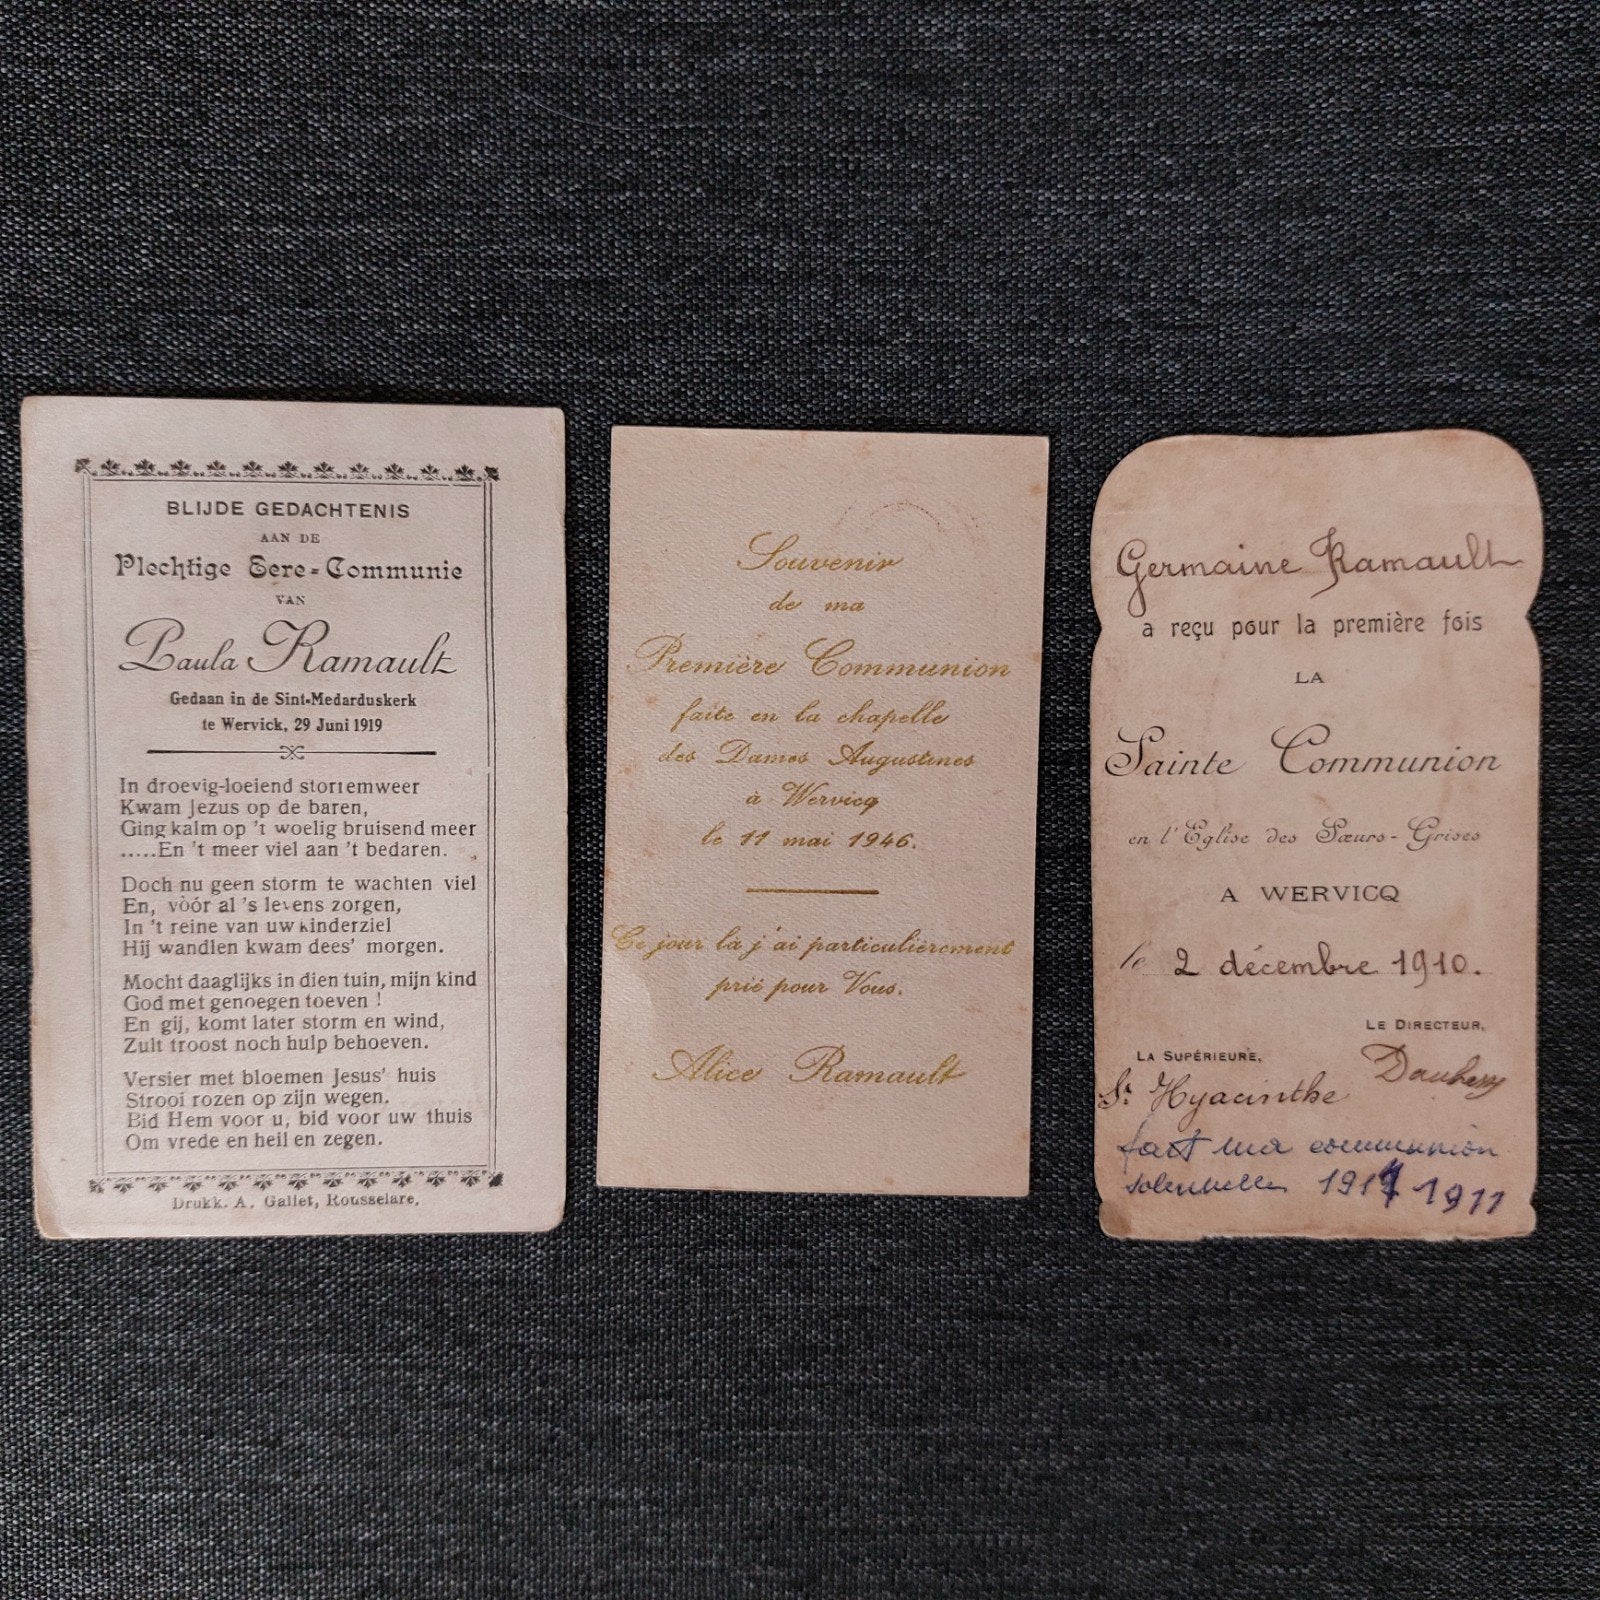 BLIJDE GEDACHTENIS
AAN DE
Plechtige Eere=Communie
VAN
Paula Ramault
Gedaan in de Sint-Medarduskerk
te Wervick, 29 Juni 1919
In droevig-loeiend stormweer
Kwam Jezus op de baren,
Ging kalm op 't woelig bruisend meer
.....En 't meer viel aan 't bedaren.
Doch nu geen storm te wachten viel
En, vòór al 's levens zorgen,
In 't reine van uw kinderziel
Hij wandlen kwam dees' morgen.
Mocht daaglijks in dien tuin, mijn kind
God met genoegen toeven !
En gij, komt later storm en wind,
Zult troost noch hulp behoeven.
Versier met bloemen Jesus' huis
Strooi rozen op zijn wegen.
Bid Hem voor u, bid voor uw thuis
Om vrede en heil en zegen.
Drukk. A. Gallet, Rousselare.
Souvenir
de ma
Première Communion
faite en la chapelle
des Dames Augustines
à Wervicq
le 11 mai 1946.
Ce jour là j'ai particulièrement
prié pour Vous.
Alice Ramault
Germaine Ramault
a reçu pour la première fois
LA
Sainte Communion
en l'Eglise des Sœurs-Grises
A WERVICQ
le 2 décembre 1910.
LE DIRECTEUR,
LA SUPÉRIEURE,
Sr Hyacinthe
fait ma communion
solennelle 1911